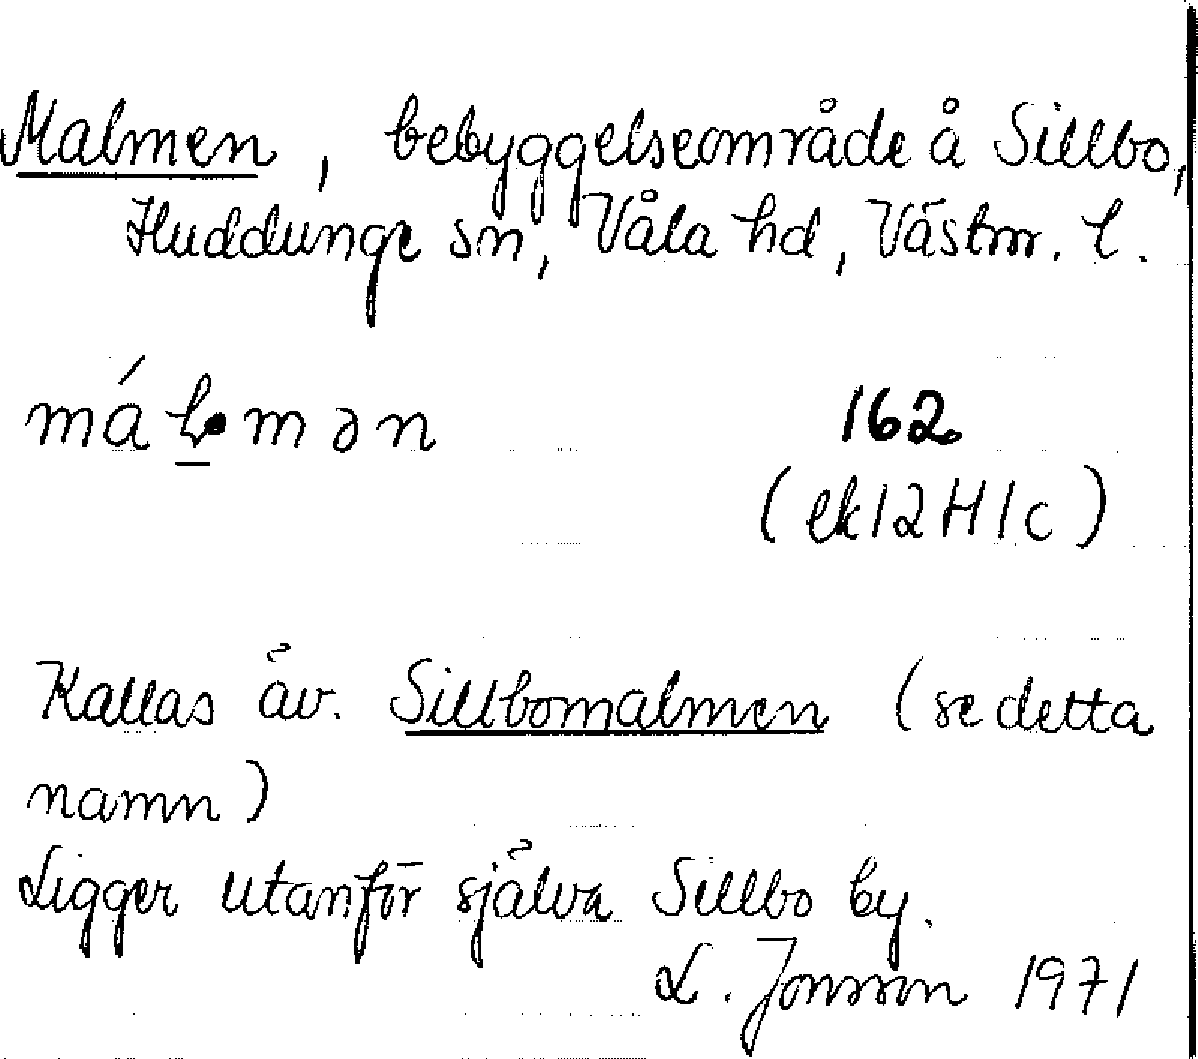 Malmen, bebyggelseområde å Sillbo,
Huddunge sn, Våla hd, Västm. l.
162
(ek 12H1c)
Kallas äv. Sillbomalmen (se detta
namn)
Ligger utanför själva Sillbo by.
L. Jonsson 1971